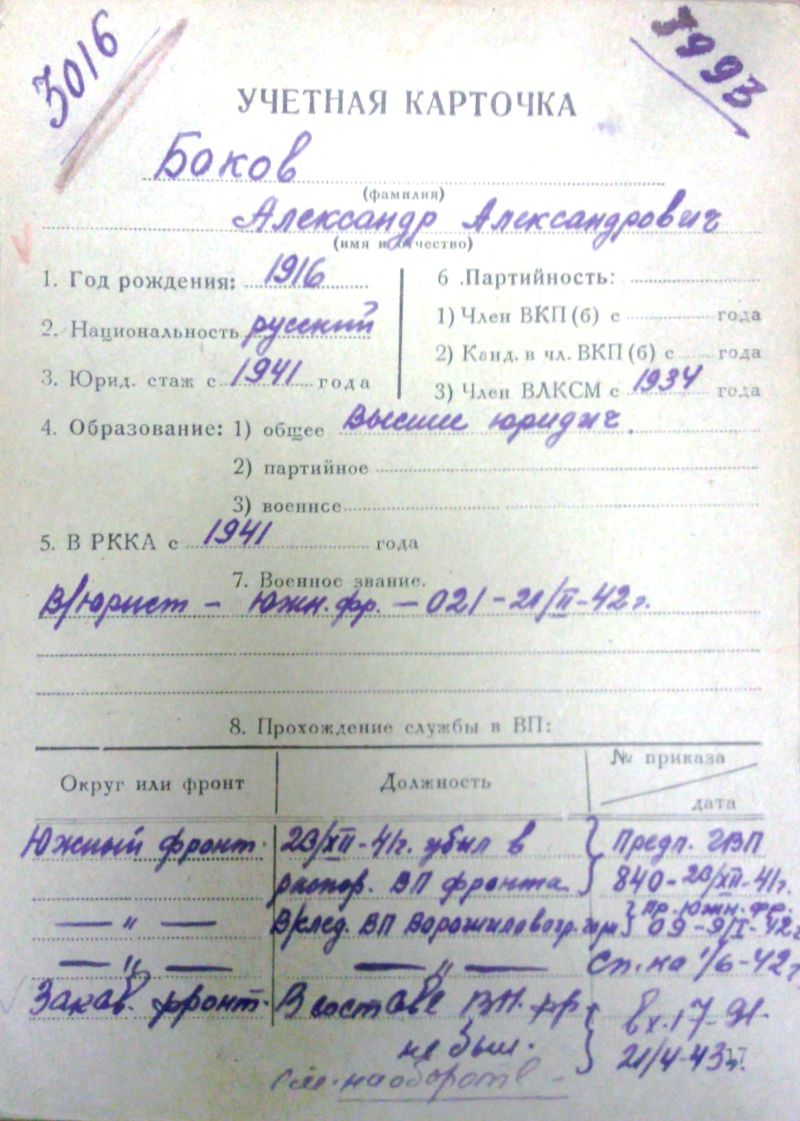 3016
3993
УЧЕТНАЯ КАРТОЧКА
Боков
(фамилия)
Александр Александрович
(имя и отчество)
1. Год рождения: 1916
2. Национальность русский
3. Юрид. стаж с 1941 года
6 .Партийность:
1) Член ВКП(б) с года
2) Канд. в чл. ВКП(б) с года
3) Член ВЛКСМ с 1934 года
4. Образование: 1) общее Высшее юридич.
2) партийное
3) военнсе
5. В РККА с 1941 года
7. Военное звание.
В/юрист - Южн. фр. - 021 - 21/II-42 г.
8. Прохождение службы в ВП:
Округ или фронт Должность № приказа
дата
Южный фронт. 23/XII-41г. убыл в Предп. ГВП
распор. ВП фронта 840-23/XII-41г.
— " — В/след. ВП Ворошиловогр. пр. Южн. фр.
09-9/I-42г
— " — — " — Сп. на 1/6-42г
Закав. фронт. В составе ВП фр. Вх.
не был. 21/4-43г.
См. на обороте -